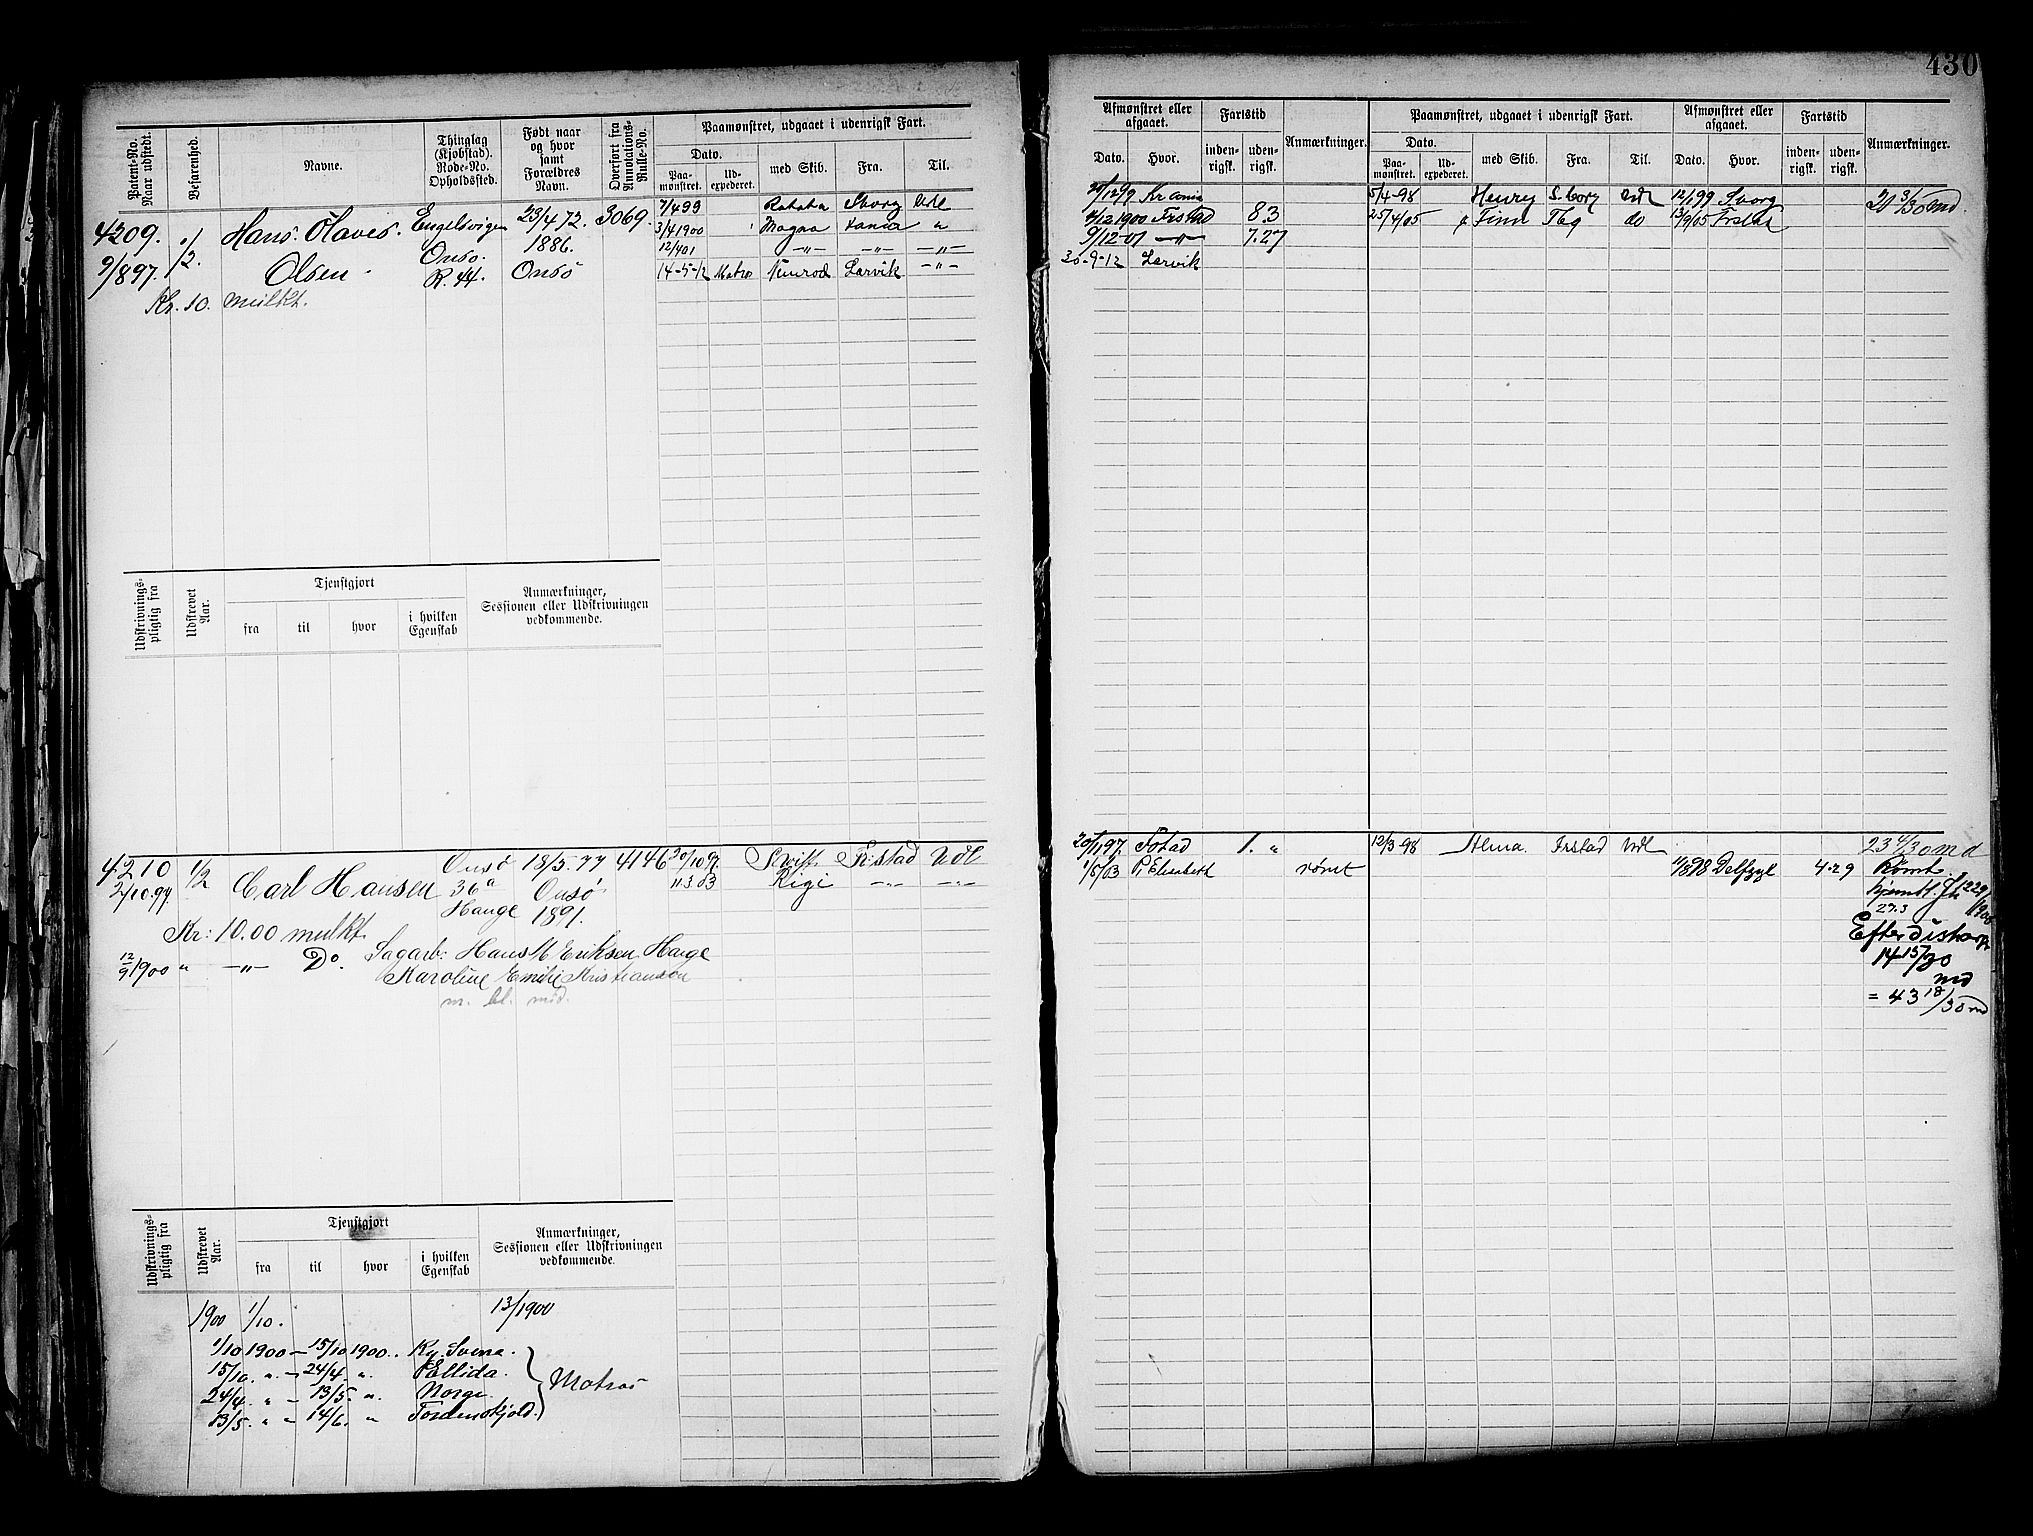 430
Patent-No. Naar udstedt.
Befarenhed.
Navne.
Thinglag (Kjøbstad). Rode-No. Opholdssted.
Født naar og hvor samt Forældres Navn.
Overført fra Annotations-Rulle-No.
Paamønstret, udgaaet i udenrigsk Fart.
Dato.
Paa-mønstret.
Ud-expederet.
med Skib.
Fra.
Til.
Afmønstret eller afgaaet.
Dato.
Hvor.
Fartstid
inden-rigsk.
uden-rigsk.
Anmærkninger.
Paamønstret, udgaaet i udenrigsk Fart.
Dato.
Paa-mønstret.
Ud-expederet.
med Skib.
Fra.
Til.
Afmønstret eller afgaaet.
Dato.
Hvor.
Fartstid
inden-rigsk.
uden-rigsk.
Anmærkninger.
4209. 1/2. Hans Olaves Engelsvigen 23/4 72. 3069. 7/4 99
9/8 97. Olsen Onsö. R. 44. 1886. Onsö
Kr. 10. mulkt.
3/4 1900 Magna
12/4 01 —"— —"— —"—
14-5-12 Larvik —"—
8 3
7/12 1900 Frstad
9/12-01 —"— 7.27
30-9-12 Larvik
5/4-98 Henry S.borg Udl 12/1 99
25/4/05 Find Tbg do
20 3/30 md.
Udskrivnings-pligtig fra
Udskrevet Aar.
Tjenstgjort
fra
til
hvor
i hvilken Egenskab
Anmærkninger, Sessionen eller Udskrivningen vedkommende.
4210 1/2 Carl Hansen Onsö 36a Hauge 18/5.77 Onsö 1891. 4146 30/10 97. Swift Fr.stad Udl
2/10.97 11.3.03 Rigi —"— —"—
Kr: 10.00 mulkt.
12/9 1900 " —"— Do. Sagarb: Hans M Eriksen Hauge
Karoline Emilie Kristianson
20/11 97. 1. "
1/5/03 P. Elisabeth rømt
12/3 98 Alma Frstad Udl
4.29
23 4/30 md
Rømt
27.3
Efter
14 15/30 md
= 43 18/30 md
Udskrivnings-pligtig fra
Udskrevet Aar.
Tjenstgjort
fra
til
hvor
i hvilken Egenskab
Anmærkninger, Sessionen eller Udskrivningen vedkommende.
1900 1/10. 13/1900
1/10 1900 — 15/10 1900.
15/10. " — 24/4 " Ellida.
24/4. " — 13/5 " Norge
13/5. " " 14/6. " Tordenskjold.
Matros